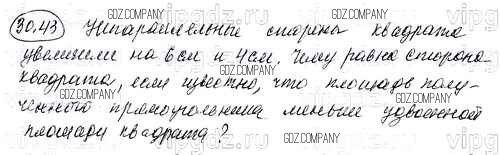 30.43 Непараллельные стороны квадрата
увеличили на 6 см и 4 см. Чему равна сторона
квадрата, если известно, что площадь полу-
ченного прямоугольника меньше удвоенной
площади квадрата?
GDZ.COMPANY
GDZ.COMPANY
GDZ.COMPANY
GDZ.COMPANY
GDZ.COMPANY
GDZ.COMPANY
GDZ.COMPANY
GDZ.COMPANY